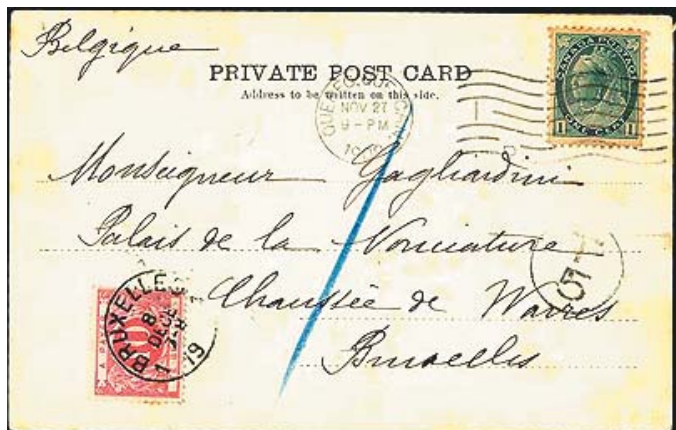 Belgique
PRIVATE POST CARD
Address to be written on this side.
QUEBEC
NOV 27
9 - PM
CANADA POSTAGE
ONE CENT
1 1
Monseigneur Gagliardini
Palais de la Nonciature
Chaussée de Wavres
Bruxelles
BRUXELLES
8
DECE
19
10
5